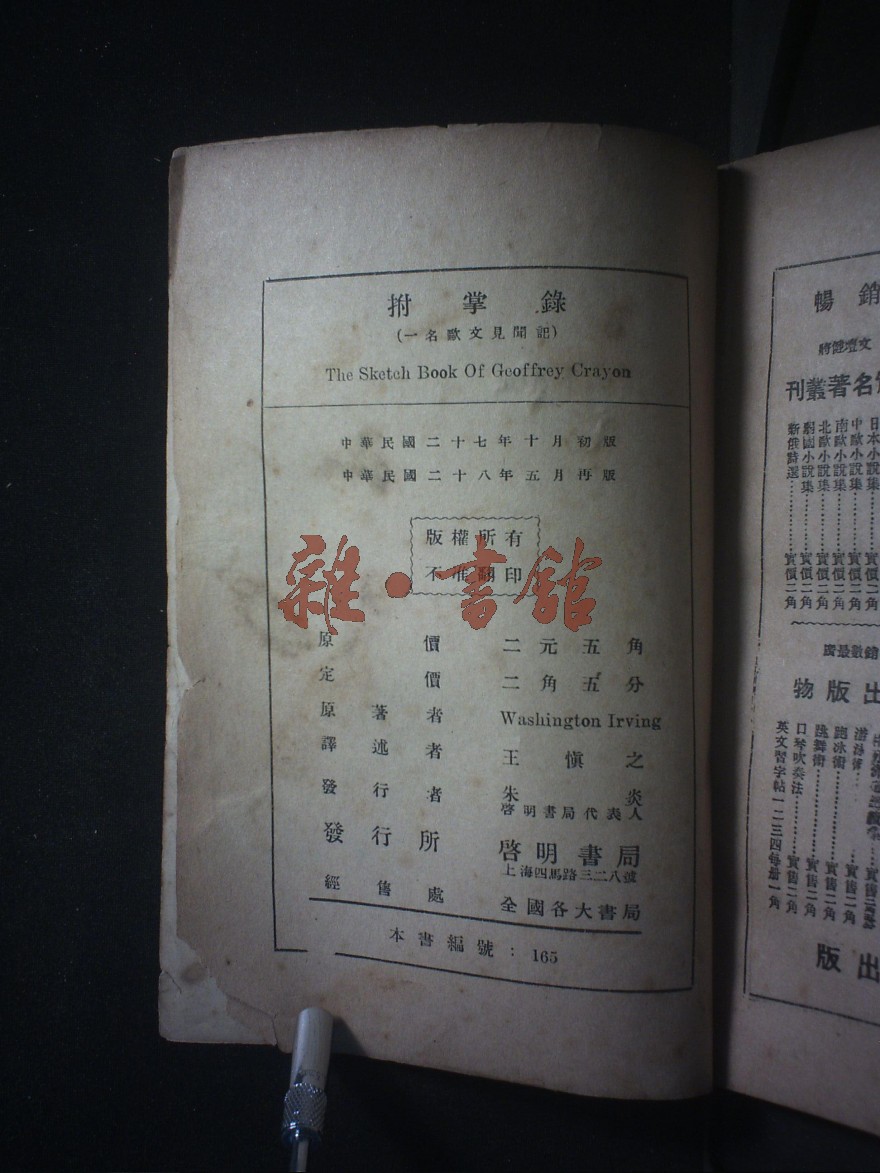 拊掌錄
(一名歐文見聞記)
The Sketch Book Of Geoffrey Crayon
中華民國二十七年十月初版
中華民國二十八年五月再版
版權所有
不准翻印
雜·書館
原價 二元五角
定價 二角五分
原著者 Washington Irving
譯述者 王慎之
發行者 朱炎
啓明書局代表人
發行所 啓明書局
上海四馬路三二八號
經售處 全國各大書局
本書編號:165
暢銷
文壇健將
名著叢刊
日本小說集⋯⋯⋯實價二角
中歐小說集⋯⋯⋯實價二角
南歐小說集⋯⋯⋯實價二角
北歐小說集⋯⋯⋯實價二角
弱國小說集⋯⋯⋯實價二角
新俄詩選⋯⋯⋯實價二角
銷數最廣
出版物
游泳術⋯⋯⋯實售二角
跑冰術⋯⋯⋯實售二角
跳舞術⋯⋯⋯實售二角
口琴吹奏法⋯⋯⋯實售二角
英文習字帖一二三四每册一角
出版